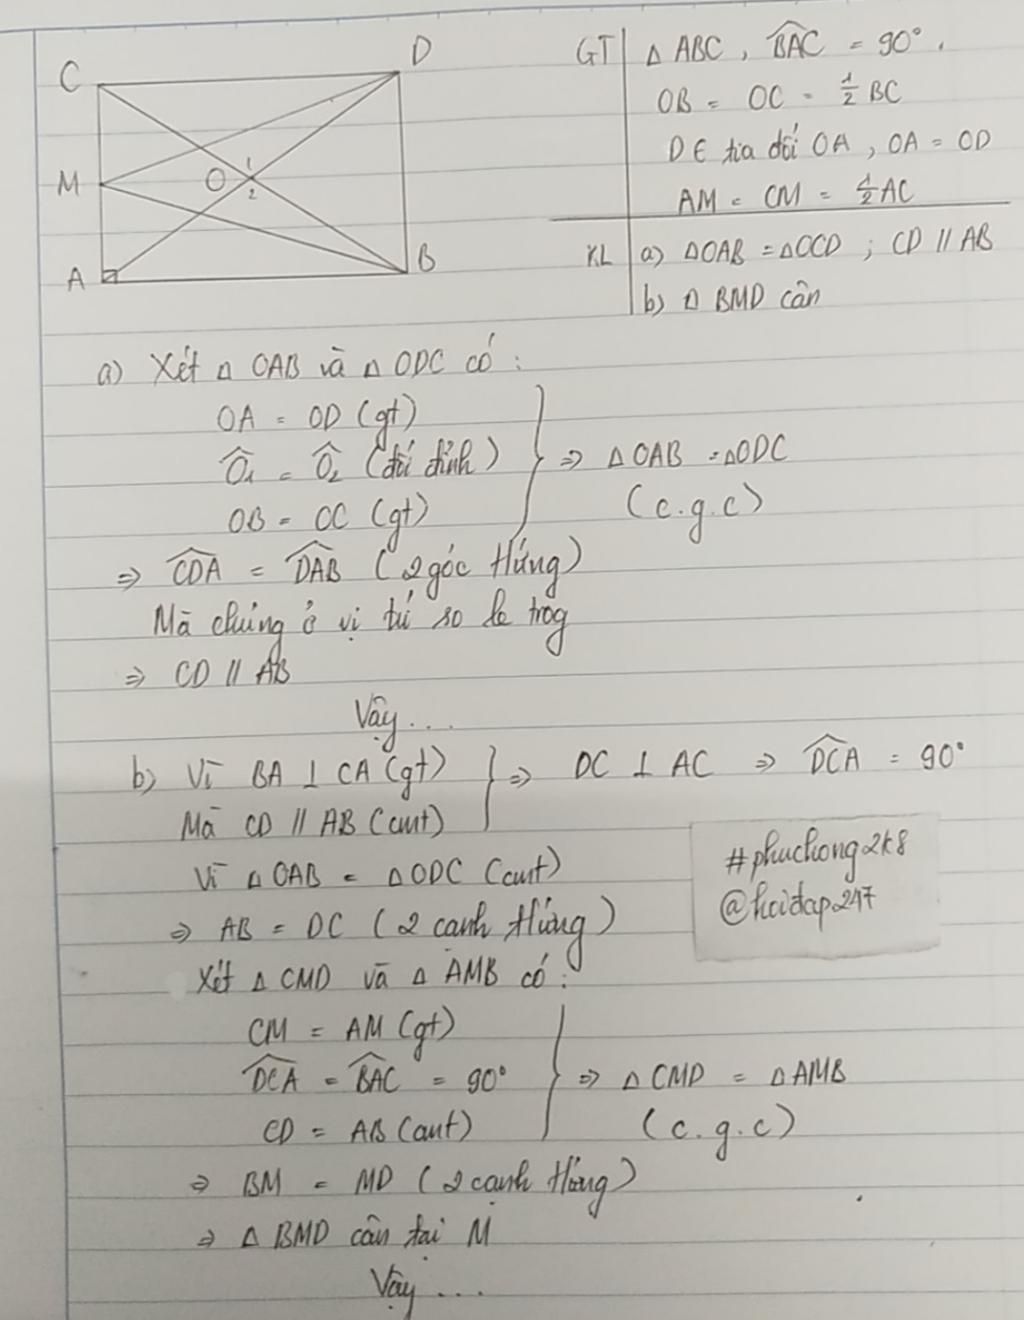 C D
M O 1 2
A B
GT Δ ABC, BAC = 90°.
OB = OC = 1/2 BC
D ∈ tia đối OA, OA = OD
AM = CM = 1/2 AC
KL a) ΔOAB = ΔOCD ; CD // AB
b) Δ BMD cân
a) Xét Δ OAB và Δ ODC có :
OA = OD (gt)
Ô1 = Ô2 (đối đỉnh) ⇒ Δ OAB = ΔODC
OB = OC (gt) (c.g.c)
⇒ CDA = DAB (2 góc tứng)
Mà chúng ở vị trí so le trog
⇒ CD // AB
Vậy...
b) Vì BA ⊥ CA (gt) ⇒ DC ⊥ AC ⇒ DCA = 90°
Mà CD // AB (cmt)
Vì Δ OAB = Δ ODC (cmt)
⇒ AB = DC (2 cạnh tứng)
Xét Δ CMD và Δ AMB có :
CM = AM (gt)
DCA = BAC = 90° ⇒ Δ CMD = Δ AMB
CD = AB (cmt) (c.g.c)
⇒ BM = MD (2 cạnh tứng)
⇒ Δ BMD cân tại M
Vậy...
#phuchong2k8
@hoidap247